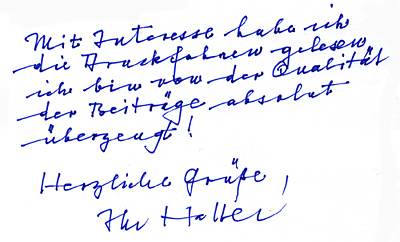 Mit Interesse habe ich
die Druckfahnen gelesen
ich bin von der Qualität
der Beiträge absolut
überzeugt!
Herzliche Grüße,
Ihr